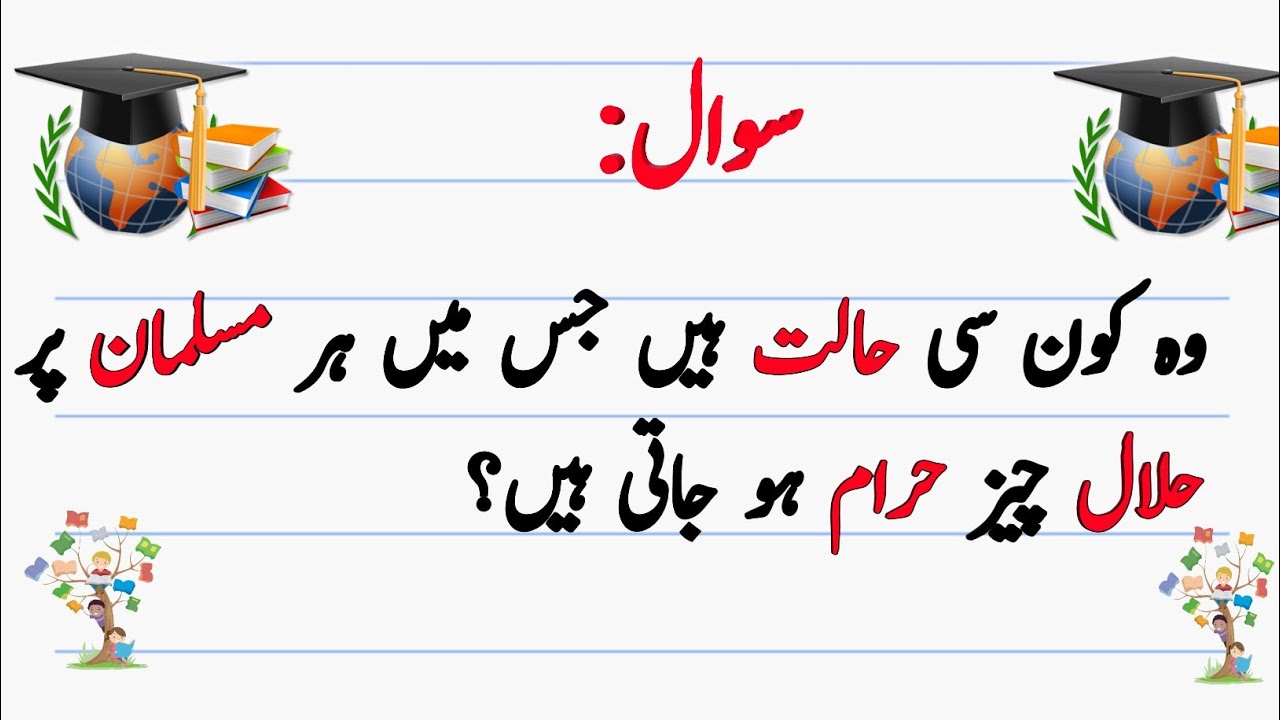 سوال:
وہ کون سی حالت ہیں جس میں ہر مسلمان پر
حلال چیز حرام ہو جاتی ہیں؟